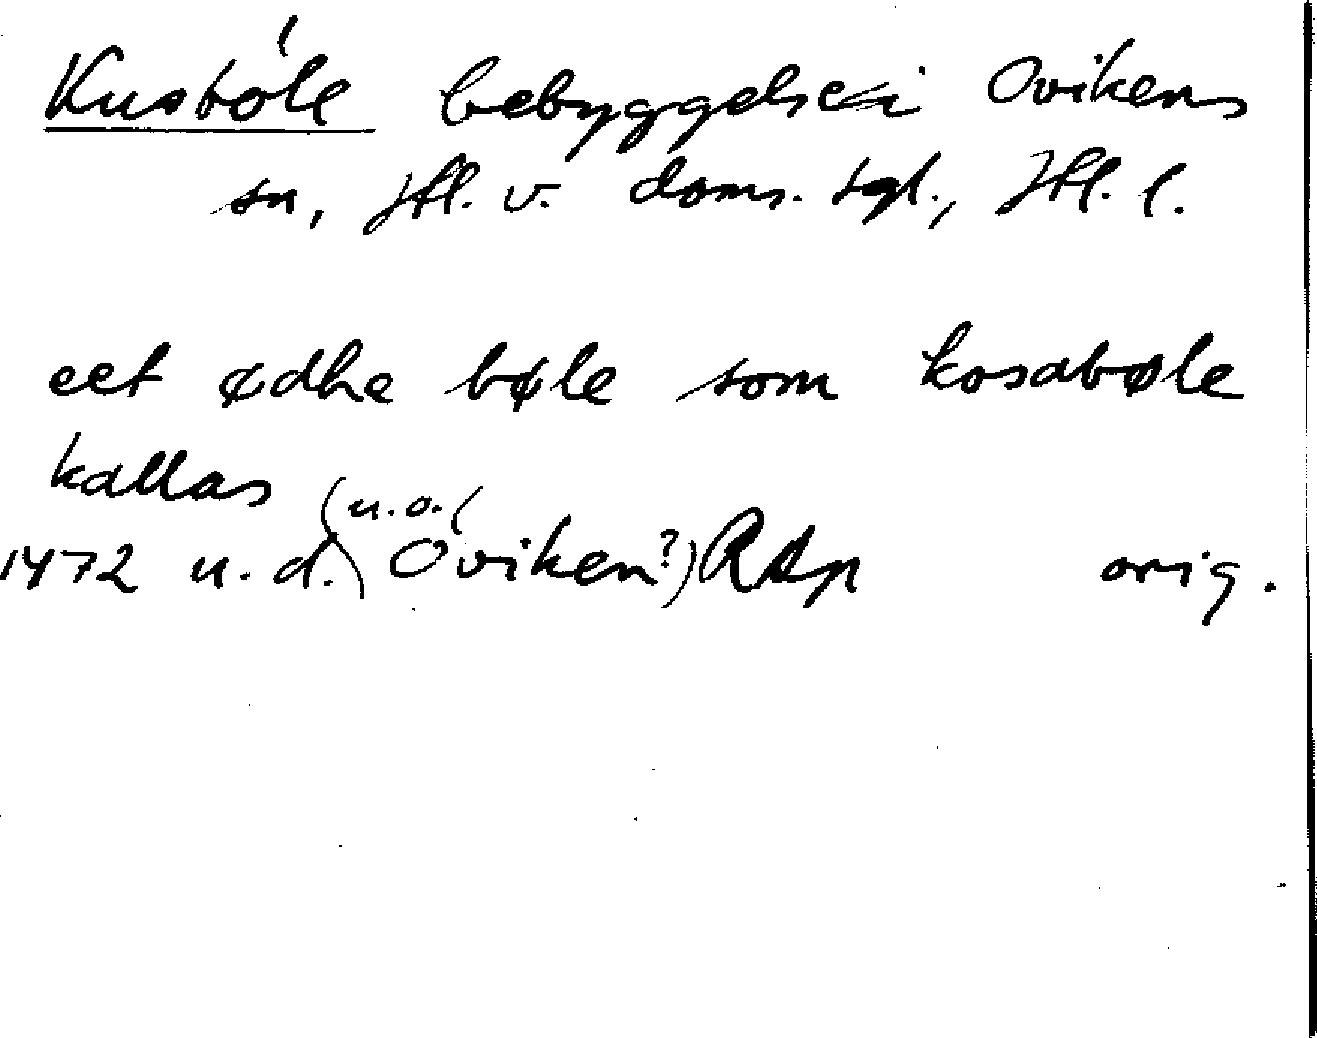 Kusböle bebyggelse i Ovikens
sn, Jtl. v. doms. tgl., Jtl. l.
eet ødhe bøle som kosabøle
kallas
1472 u. d. (u. o. (Oviken?) RAp orig.